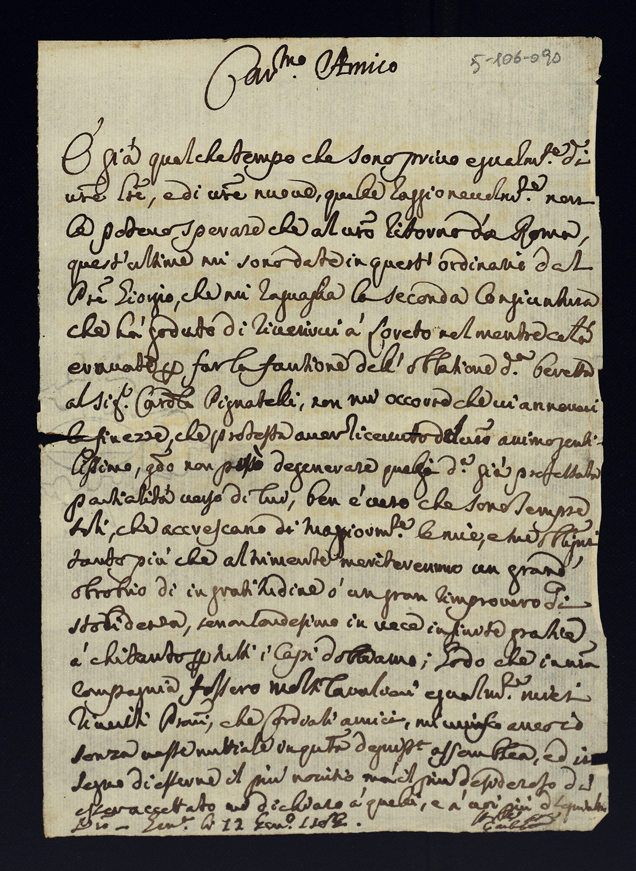 5-106-090
Car.mo Amico
È già qualche tempo che sono privo egualm.te di
vre lre, e di vre nuove, quelle raggionevolm.te non
le potevo sperare che al vro ritorno da Roma,
quest'ultime mi sono date in quest' ordinario dal
Pre Giorgio, che mi raguaglia la seconda Congiuntura
che hà goduto di riverirvi à Loreto nel mentre
p far la fontione dell' oblatione d.a beretta
al Sig.r Card.le Pignatelli, non mi occorre che vi annoveri
le finezze, che protesta aver ricevuto dal vro animo genti-
lissimo, non degenerare quella d.a già professata
partialità verso di lui, ben è vero che sono sempre
tali, che accrescano di maggiorm.te le mie, e sue
tanto più che altrimente meriteremmo un grand'
obrobrio di ingratitudine ò un gran rimprovero di
se non rendessimo in vece infinite gratie
à chi tanto p tutti i Capi dobbiamo; Godo che in una
Compagnia fossero molti Cavalieri egualm.te miei
riveriti Proni, che cordiali amici,
senza veste nutiale in assemblea, ed in
segno di esserne il più mà il più desideroso di
esser accettato mi dichiaro à quelli, e à voi più
12 Gen.o